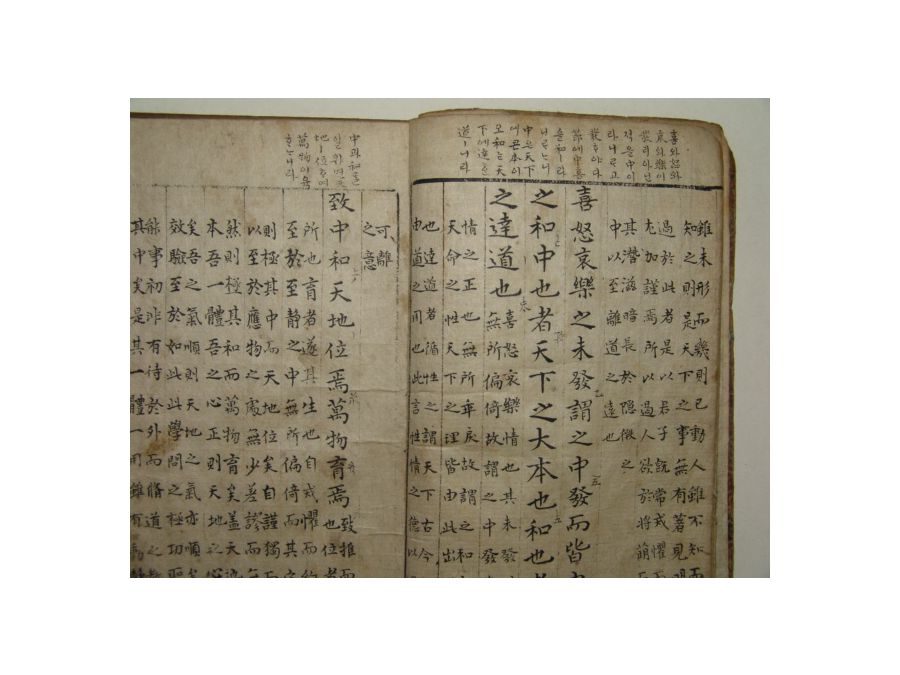 喜와怒와
哀와樂이
發티아닌
적을中이
라니르고
發호야다
節에中홈
을和ㅣ라
니르느니
中은天下
에큰本이
오和는天
下에達호
道ㅣ니라
雖未形而幾則已動人雖不知而
知之則是天下之事無有著見明
過於此者是以君子旣常戒懼而
尤加謹焉所以遏人欲於將萌而
其潛滋暗長於隱微之
中以至離道之遠也
喜怒哀樂之未發謂之中發而皆中
之和中也者天下之大本也和也者
之達道也喜怒哀樂情也其未發
無所偏倚故謂之中發
情之正也無所乖戾故謂之和
天命之性天下之理皆由此出
也達道者循性之謂天下古今
由道之用也此言性情之德以
中과和를
일위면天
地ㅣ位호며
萬物이育
호느니라
可離
之意
致中和天地位焉萬物育焉致推而
也位者
所也育者遂其生也自戒懼而約
至於至靜之中無所偏倚而其守
則極其中而天地位矣自謹獨而
以至於應物之處無少差謬而
然則極其和而萬物育矣盖天
本吾一體吾之心正則天地之心
矣吾之氣順則天地之氣亦順矣
效驗至於如此此學問之極功聖
能事初非有待於外而脩道之敎
其中矣是其一體一用雖有動靜